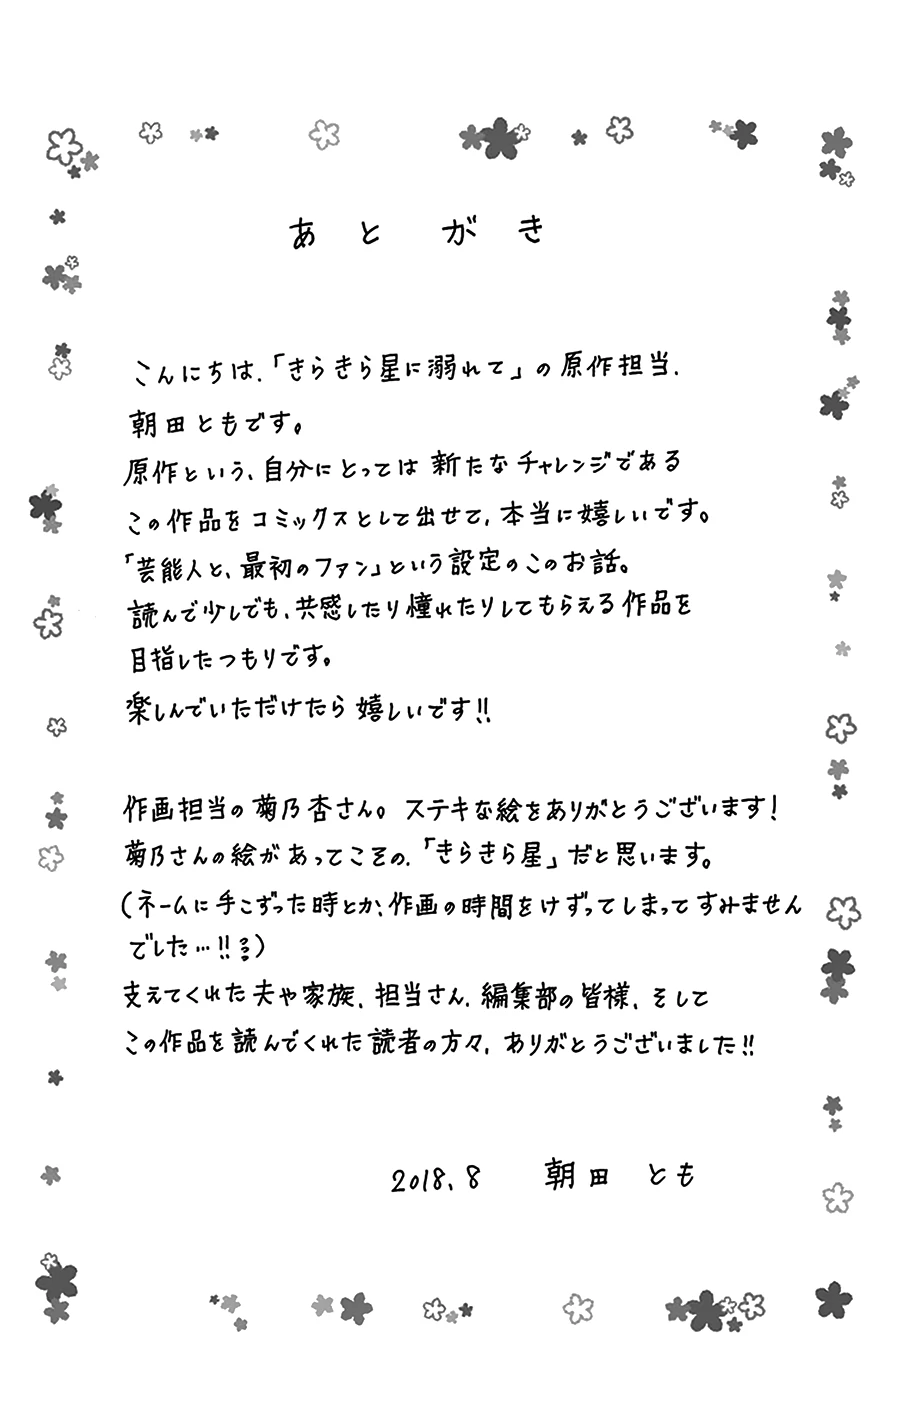 あとがき
こんにちは、「きらきら星に溺れて」の原作担当、
朝田ともです。
原作という、自分にとっては新たなチャレンジである
この作品をコミックスとして出せて、本当に嬉しいです。
「芸能人と、最初のファン」という設定のこのお話。
読んで少しでも、共感したり憧れたりしてもらえる作品を
目指したつもりです。
楽しんでいただけたら嬉しいです!!
作画担当の菊乃杏さん。ステキな絵をありがとうございます!
菊乃さんの絵があってこその、「きらきら星」だと思います。
(ネームに手こずった時とか、作画の時間をけずってしまってすみません
でした…!!)
支えてくれた夫や家族、担当さん、編集部の皆様、そして
この作品を読んでくれた読者の方々、ありがとうございました!!
2018.8 朝田 とも